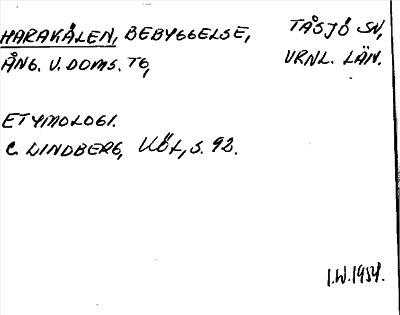 HARAKÅLEN, BEBYGGELSE, TÅSJÖ SN,
ÅNG. V. DOMS. TG, VRNL. LÄN.
ETYMOLOGI.
C. LINDBERG, KÖL, S. 92.
I.W. 1954.